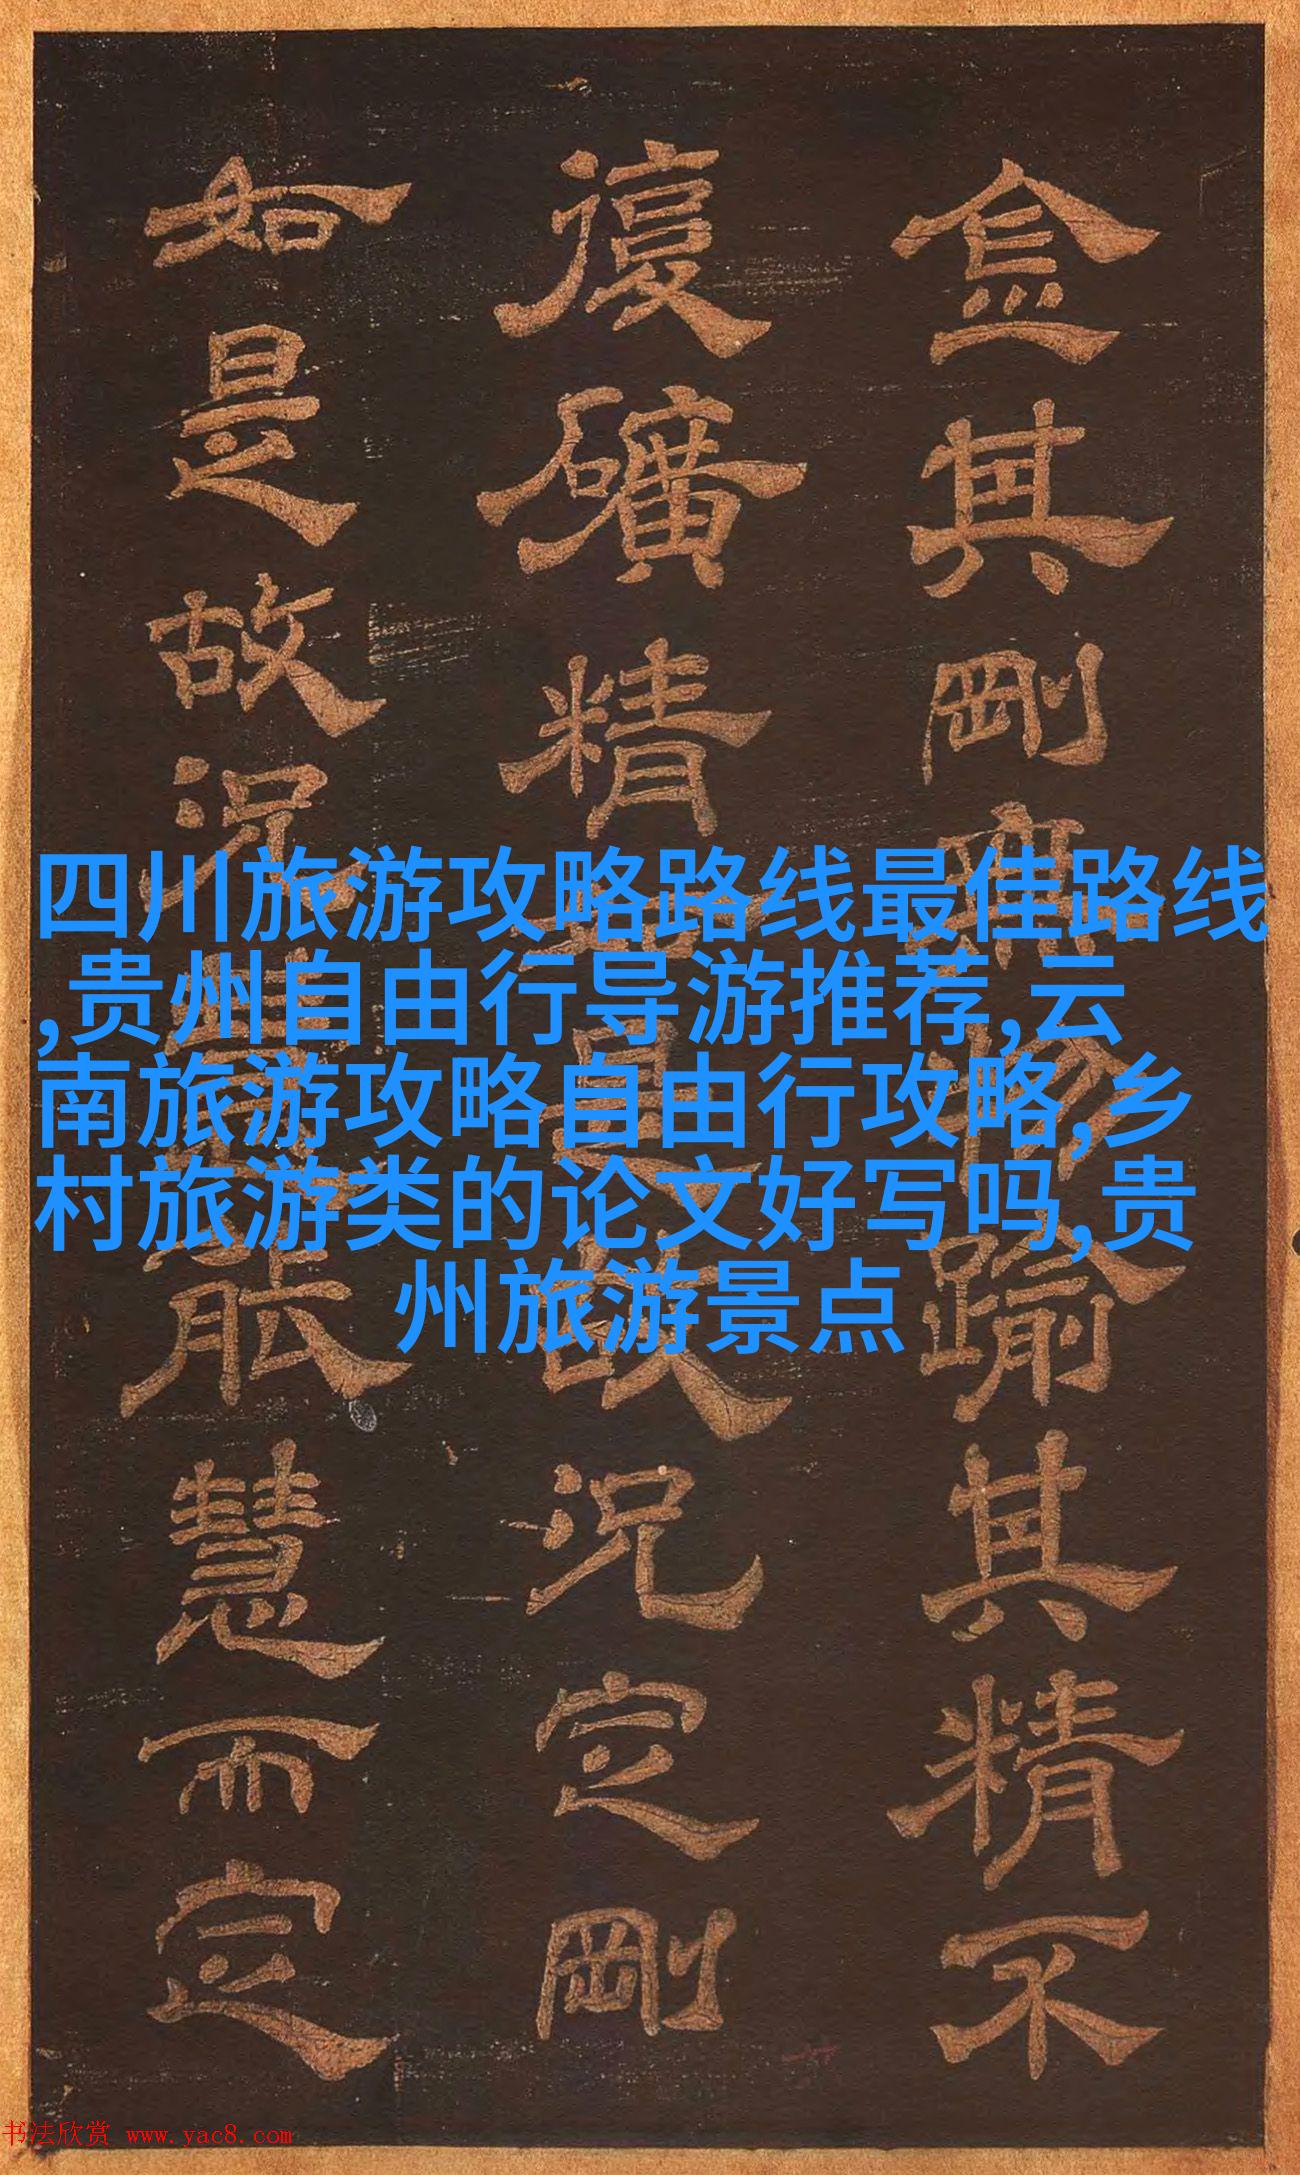 金其剛物踰其精不
復礦精是故況定剛
如是故況能慧而定
四川旅游攻略路线最佳路线
,贵州自由行导游推荐,云
南旅游攻略自由行攻略,乡
村旅游类的论文好写吗,贵
州旅游景点
书法欣赏 www.yac8.com